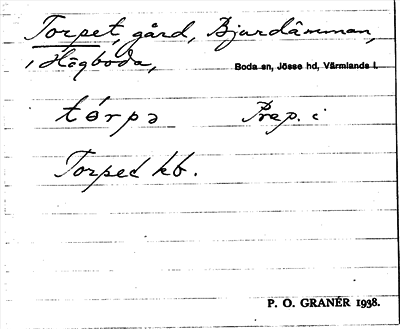 Torpet, gård, Bjurdämman,
i Högboda,
Boda sn, Jösse hd, Värmlands l.
tórpə Prep. i
Torpet kb.
P. O. GRANÉR 1938.